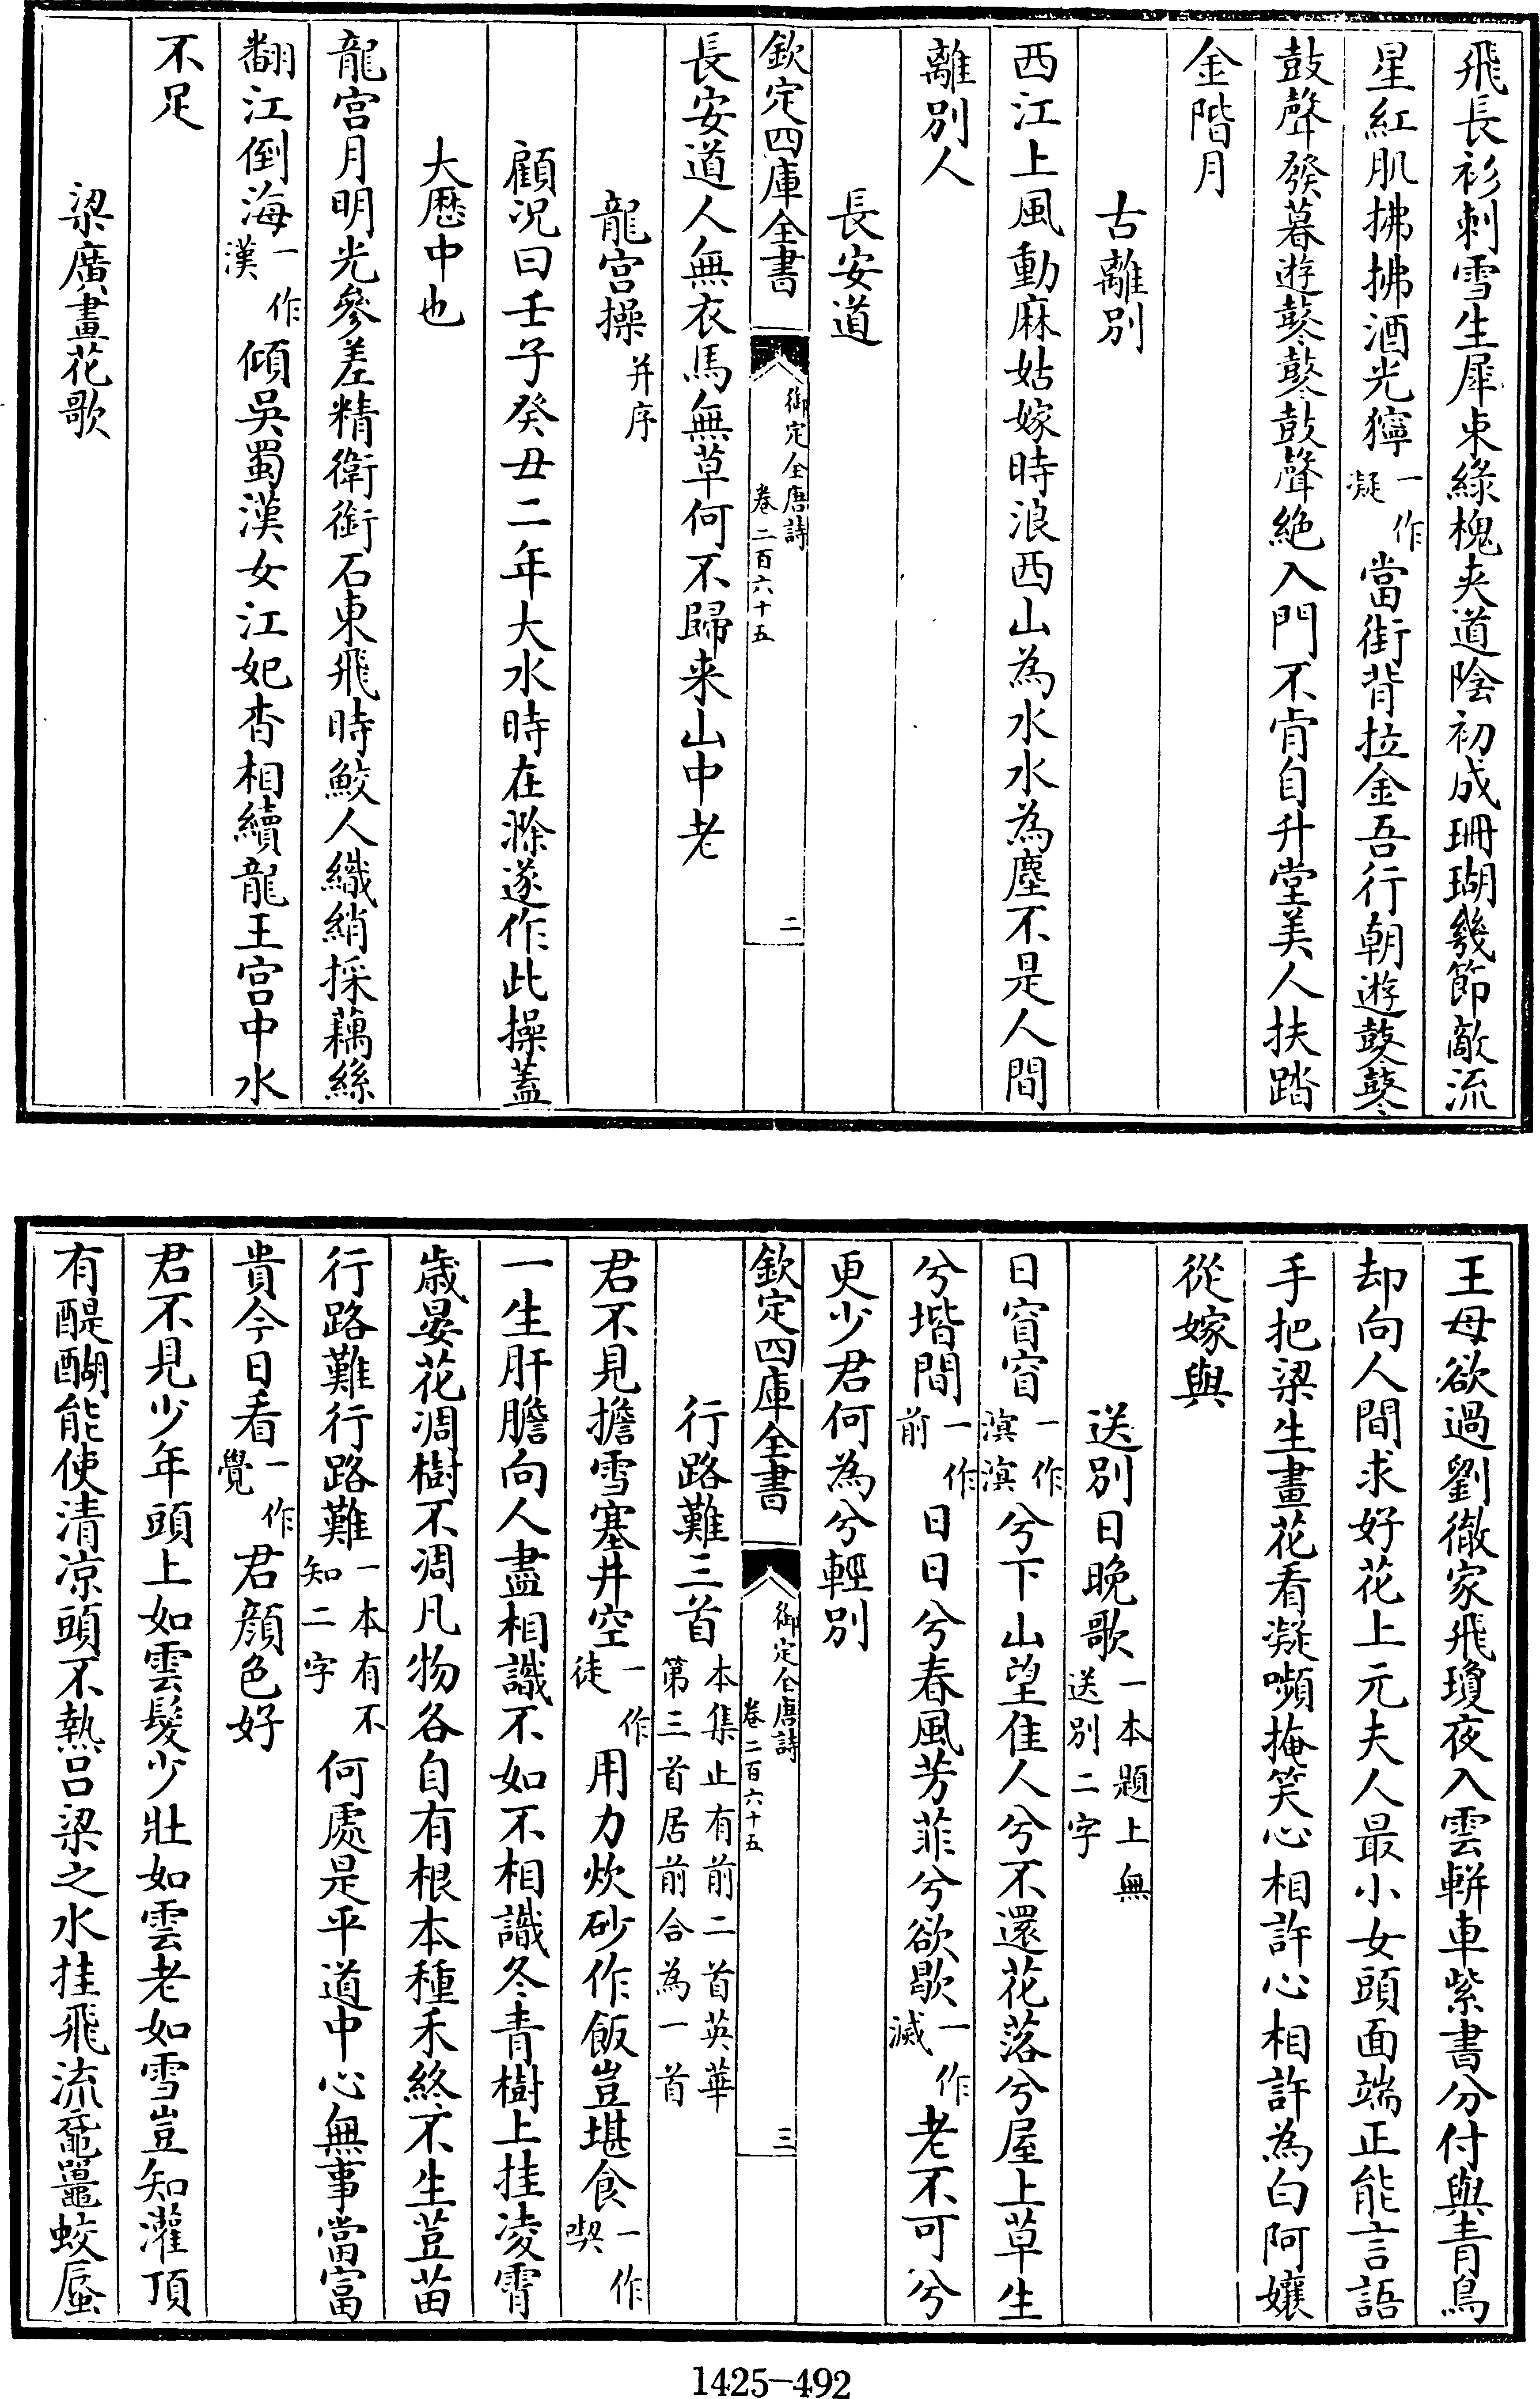 飛長衫刺雪生犀束綠槐夾道陰初成珊瑚幾節敵流
星紅肌拂拂酒光獰一作凝當街背拉金吾行朝遊鼕鼕
鼓聲發暮遊鼕鼕鼓聲絶入門不肯自升堂美人扶踏
金階月
古離別
西江上風動麻姑嫁時浪西山為水水為塵不是人間
離別人
長安道
欽定四庫全書 御定全唐詩 卷二百六十五 二
長安道人無衣馬無草何不歸来山中老
龍宫操并序
顧况曰壬子癸丑二年大水時在滁遂作此操蓋
大歴中也
龍宫月明光參差精衛銜石東飛時鮫人織綃採藕絲
翻江倒海一作漢傾吳蜀漢女江妃杳相續龍王宫中水
不足
梁廣畫花歌
王母欲過劉徹家飛瓊夜入雲軿車紫書分付與青鳥
却向人間求好花上元夫人最小女頭面端正能言語
手把梁生畫花看凝嚬掩笑心相許心相許為白阿孃
從嫁與
送別日晚歌一本題上無送別二字
日窅窅一作溟溟兮下山望佳人兮不還花落兮屋上草生
兮堦間一作前日日兮春風芳菲兮欲歇一作滅老不可兮
更少君何為兮輕別
欽定四庫全書 御定全唐詩 卷二百六十五 三
行路難三首本集止有前二首英華第三首居前合為一首
君不見擔雪塞井空一作徒用力炊砂作飯豈堪食一作喫
一生肝膽向人盡相識不如不相識冬青樹上挂凌霄
歲晏花凋樹不凋凡物各自有根本種禾終不生荳苗
行路難行路難一本有不知二字何處是平道中心無事當富
貴今日看一作覺君顔色好
君不見少年頭上如雲髮少壯如雲老如雪豈知灌頂
有醍醐能使清凉頭不熱吕梁之水挂飛流黿鼉蛟蜃
1425-492